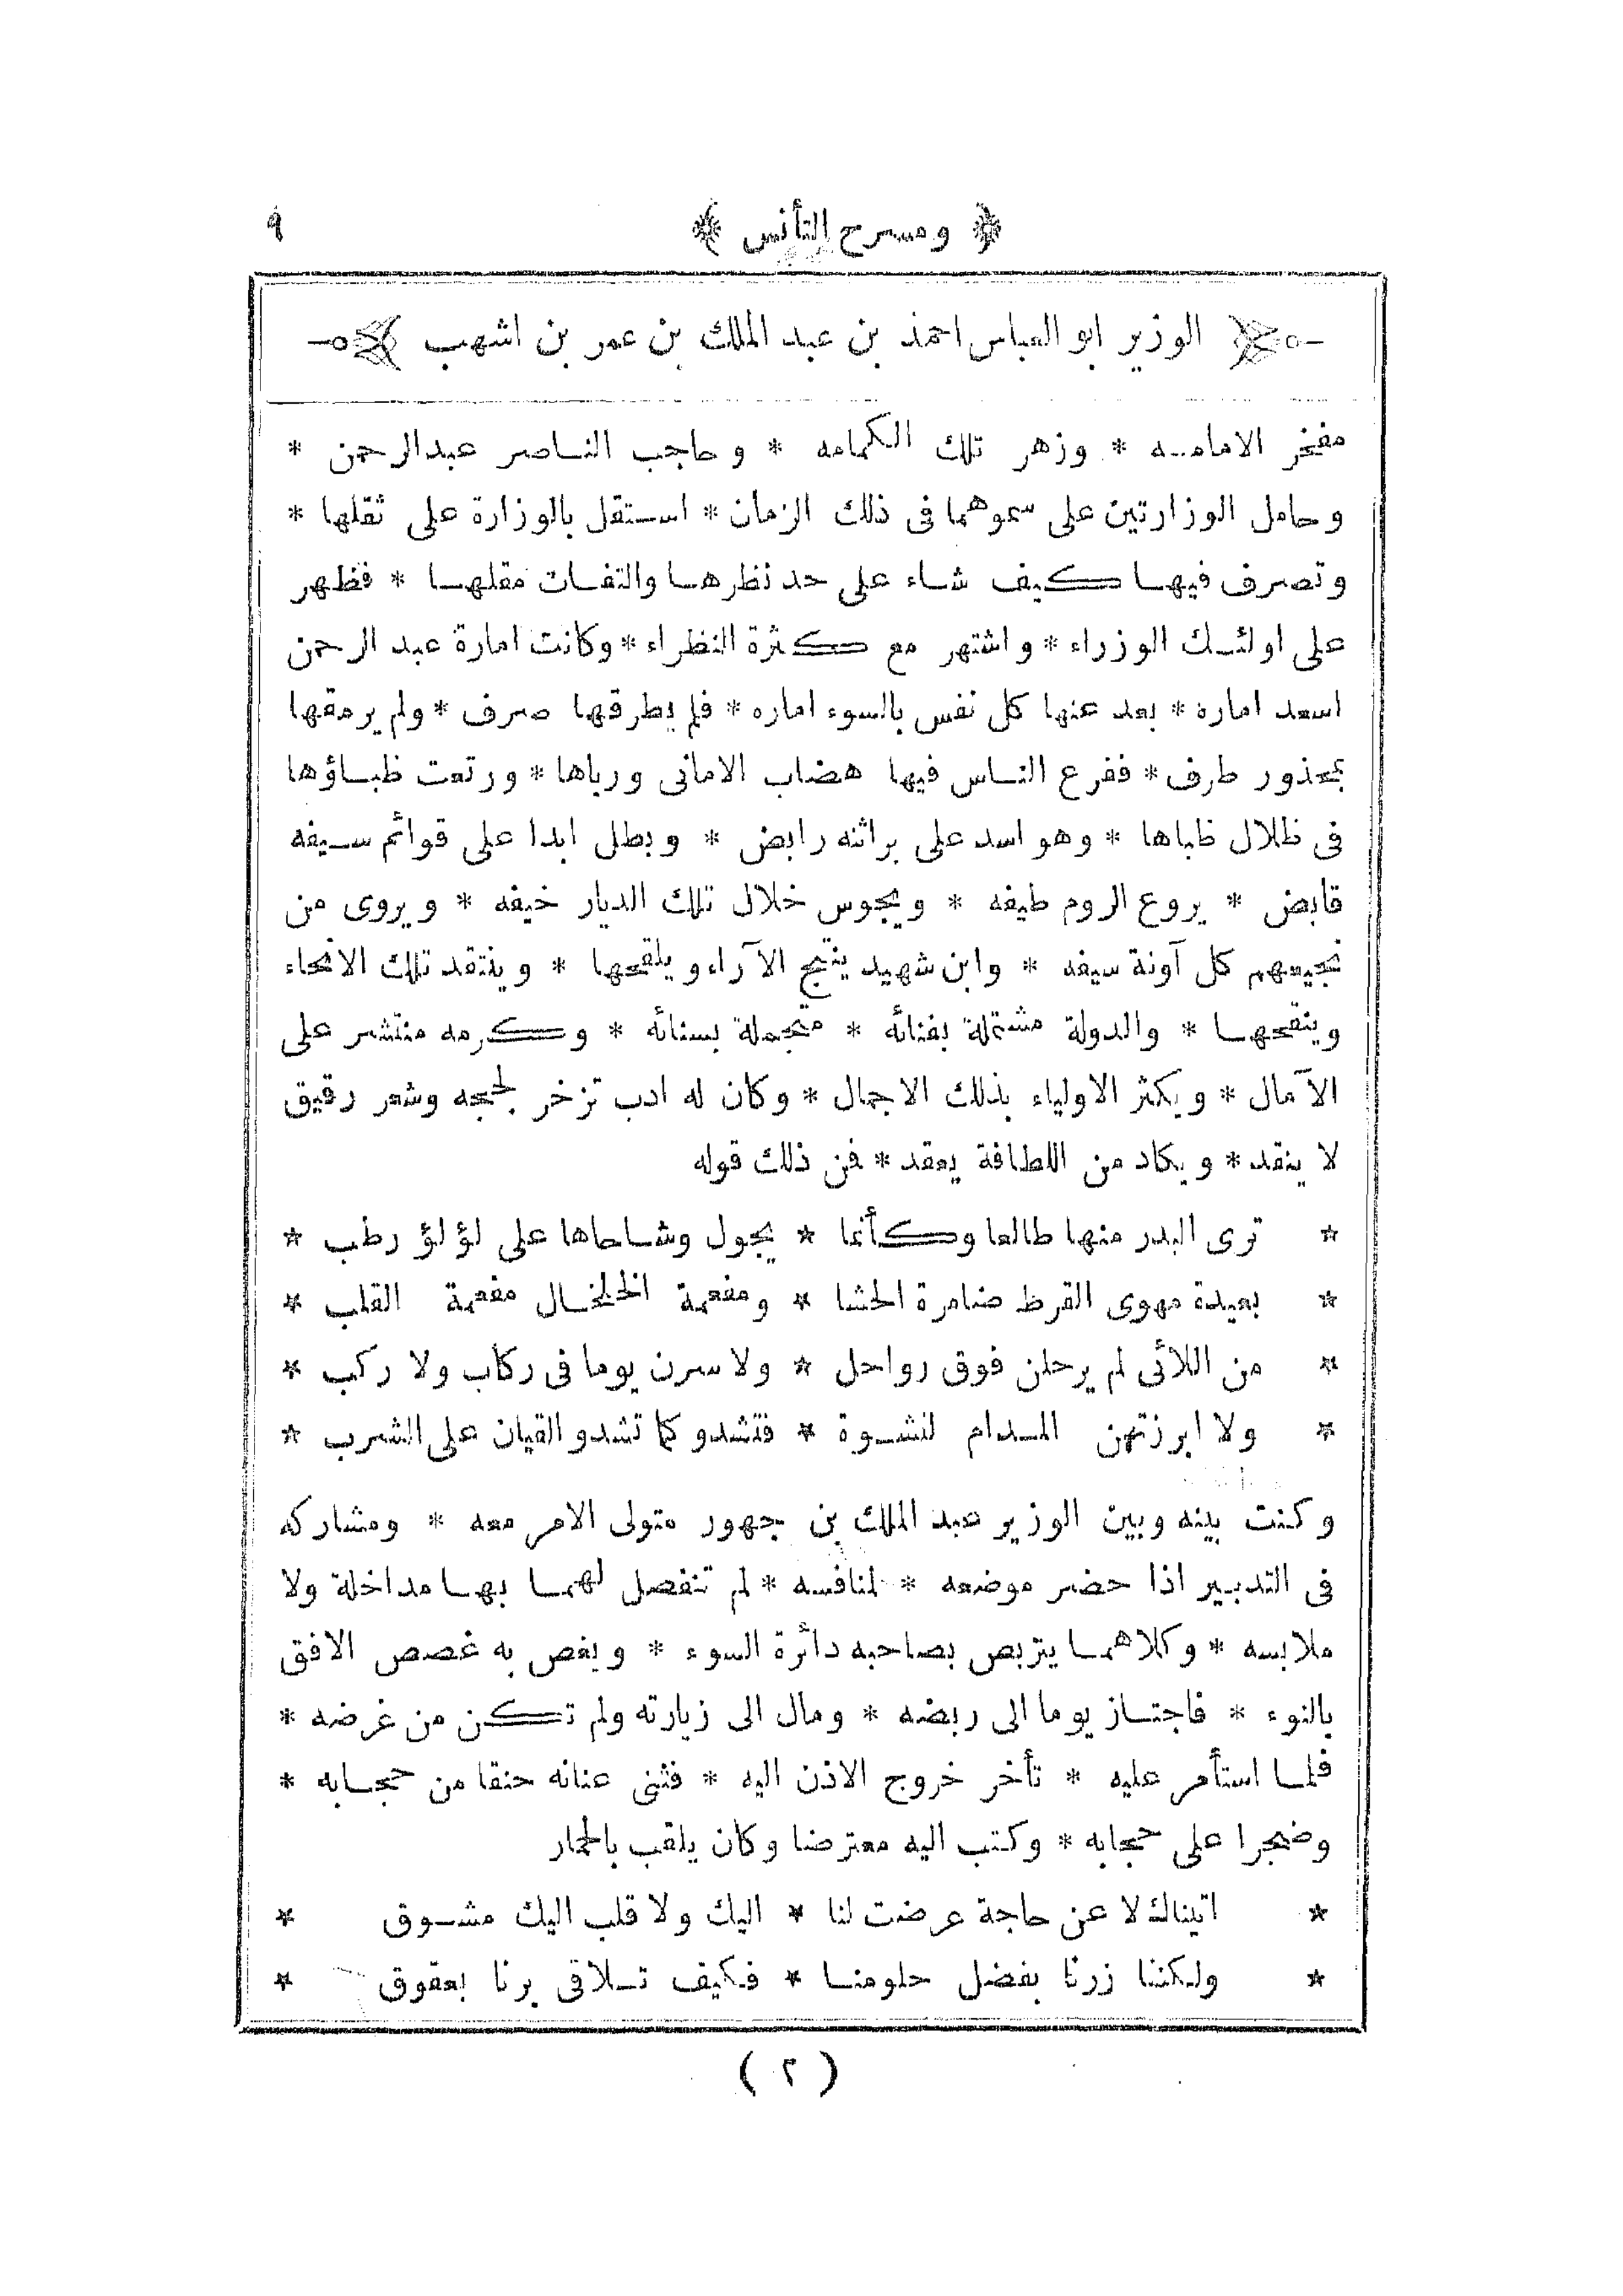 ﴿ ومسرح التأنس ﴾ ٩
الوزير ابو العباس احمد بن عبد الملك بن عمر بن اشهب
مفخر الامامـه * وزهر تلك الكمامه * وحاجب الناصر عبدالرحمن *
وحامل الوزارتين على سموهما فى ذلك الزمان * استقل بالوزارة على ثقلها *
وتصرف فيها كيف شاء على حد نظرها والتفات مقلها * فظهر
على اولئك الوزراء * واشتهر مع كثرة النظراء * وكانت امارة عبد الرحمن
اسعد اماره * بعد عنها كل نفس بالسوء اماره * فلم يطرقها صرف * ولم يرمقها
بمحذور طرف * ففرع الناس فيها هضاب الامانى ورباها * ورتعت ظباؤها
فى ظلال ظباها * وهو اسد على براثنه رابض * وبطل ابدا على قوائم سيفه
قابض * يروع الروم طيفه * ويجوس خلال تلك الديار خيفه * ويروى من
نجيعهم كل آونة سيفه * وابن شهيد ينتج الآراء ويلقحها * وينتقد تلك الانحاء
وينقحها * والدولة مشتملة بفنائه * متجملة بسنائه * وكرمه منتشر على
الآمال * ويكثر الاولياء بذلك الاجمال * وكان له ادب تزخر لججه وشعر رقيق
لا ينقد * ويكاد من اللطافة يعقد * فمن ذلك قوله
* ترى البدر منها طالعا وكأنما * يجول وشاحاها على لؤلؤ رطب *
* بعيدة مهوى القرط ضامرة الحشا * ومفعمة الخلخال مفعمة القلب *
* من اللائى لم يرحلن فوق رواحل * ولا سرن يوما فى ركاب ولا ركب *
* ولا ابرزتهن المدام لنشوة * فتشدو كما تشدو القيان على الشرب *
وكنت بينه وبين الوزير عبد الملك بن جهور متولى الامر معه * ومشاركه
فى التدبير اذا حضر موضعه * لمنافسه * لم تنفصل لهما بها مداخلة ولا
ملابسه * وكلاهما يتربص بصاحبه دائرة السوء * ويغص به غصص الافق
بالنوء * فاجتاز يوما الى ربضه * ومال الى زيارته ولم تكن من غرضه *
فلما استأمر عليه * تأخر خروج الاذن اليه * فثنى عنانه حنقا من حجابه *
وضجرا على حجابه * وكتب اليه معترضا وكان يلقب بالحمار
* اتيناك لا عن حاجة عرضت لنا * اليك ولا قلب اليك مشوق *
* ولكننا زرنا بفضل حلومنا * فكيف تلاقى برنا بعقوق *
( ٢ )